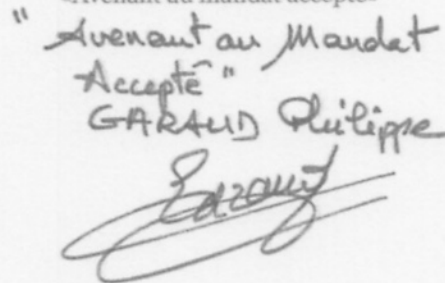 «Avenant au mandat accepté»
"Avenant au Mandat
Accepté"
GARAUD Philippe
Garaud